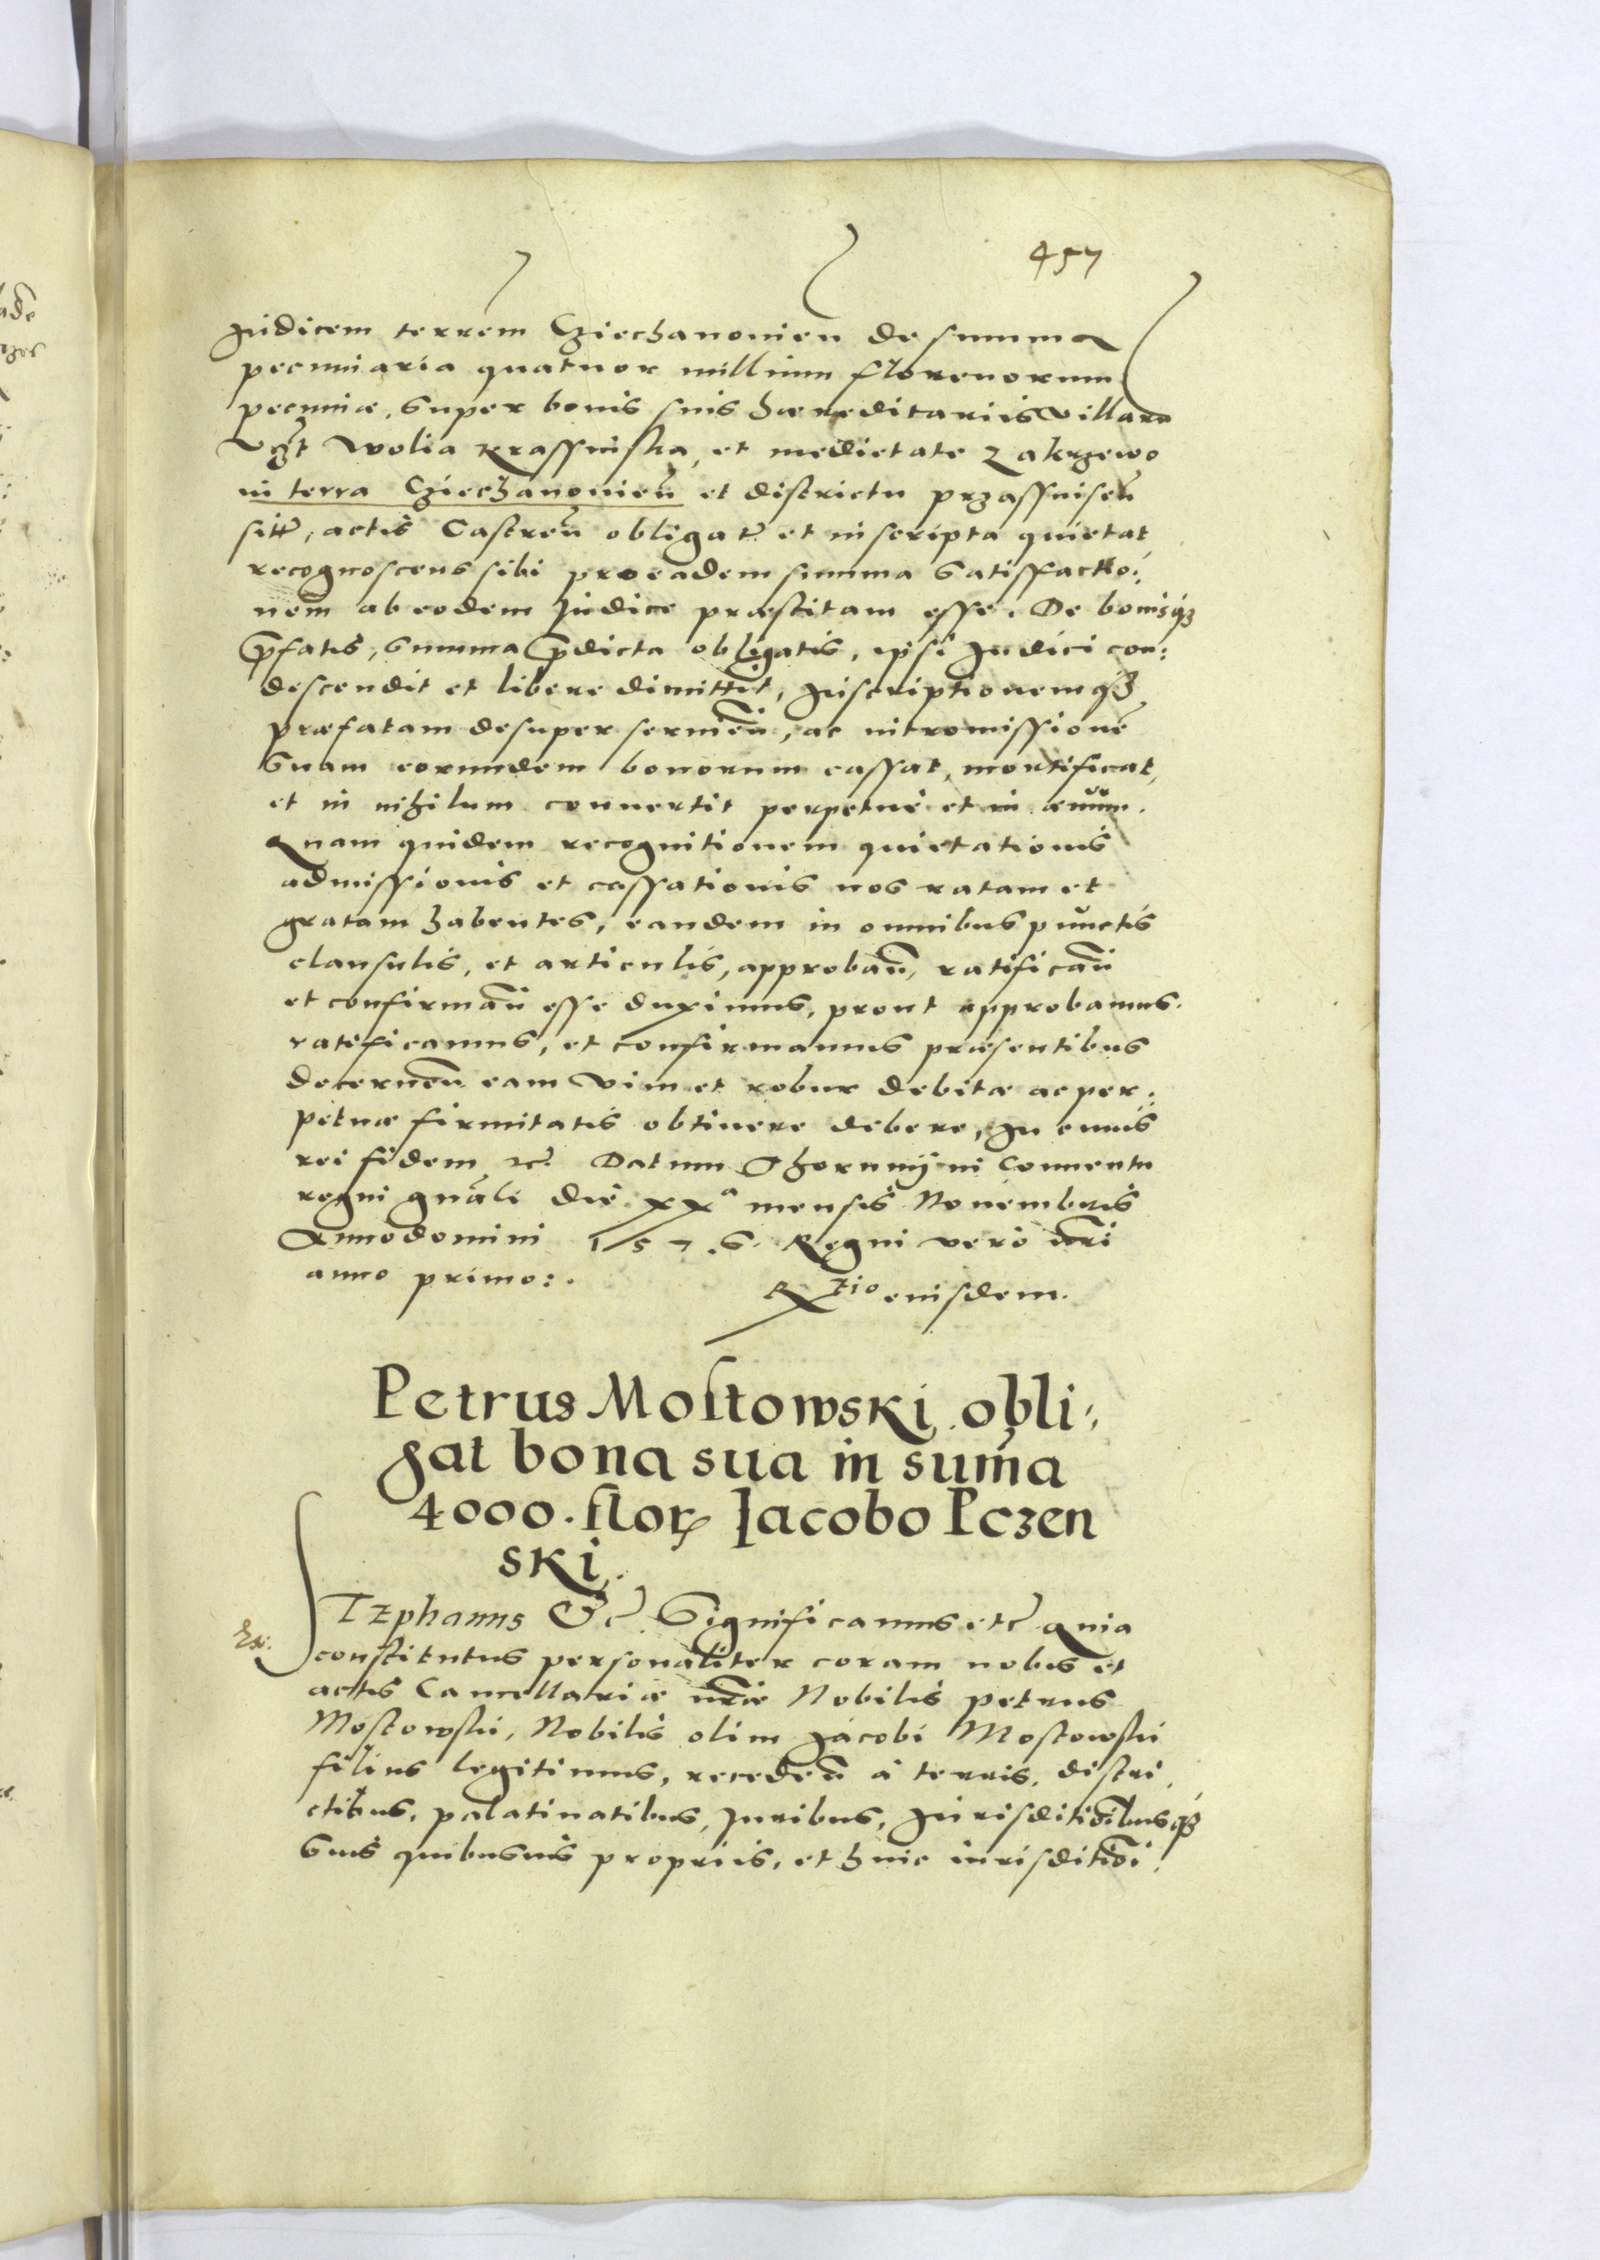 457
Judicem terrem̃ Cziechanonien̄ de summa
pecuniaria quatuor millium florenorum
pecuniæ, super bonis suis hæreditariis villarꝝ
vgt̃ Wolia Krassinska, et medietate Zakrzewo
in terra Cziechanonien̄ et districtu przassnisen̄
sitt̃, actis Castren̄ obligat̃ et inscripta quietat
recognoscens sibi pro eadem summa satisfactio:
nem ab eodem Judice præstitam esse. De bonisqꝫ
p̄fatis, summa p̄dicta obligatis, ipsi Judici con:
descendit et libere dimittit, Inscriptionemqꝫ
præfatam desuper sermen̄, ac intromissionē
suam eorundem bonorum cassat, mortificat,
et in nihilum conuertit perpetuè et in æuum.
Quam quidem recognitionem quietationis
admissionis et cassationis nos ratam et
gratam habentes, eandem in omnibus punctis
clausulis, et articulis, approban̄, ratifican̄
et confirman̄ esse duximus, prout approbamus.
ratificamus, et confirmamus præsentibus
decernen̄ eam vim et robur debitæ ac per:
petuæ firmitatis obtinere debere, In cuius
rei fidem etc̃. Datum Thorunij in Conuentu
regni gn̄ali die xxª mensis Nouembris
Anno domini 1576. Regni vero nr̄i
anno primo:.
Rtio eiusdem.
Petrus Mostowski obli:
gat bona sua in sum̃a
4000. florꝝ Jacobo Pczen
ski.
STEphanus &c̃ Significamus etc̃ Quia
constitutus personaliter coram nobis et
actis Cancellariæ nr̄æ Nobilis petrus
Mostowski, Nobilis olim Jacobi Mostowski
filius legitimus, receden̄ à terris, distri
ctibus, palatinatibus, Juribus, Jurisditiōibusqꝫ
suis quibusuis propriis, et huic iurisditiōi.